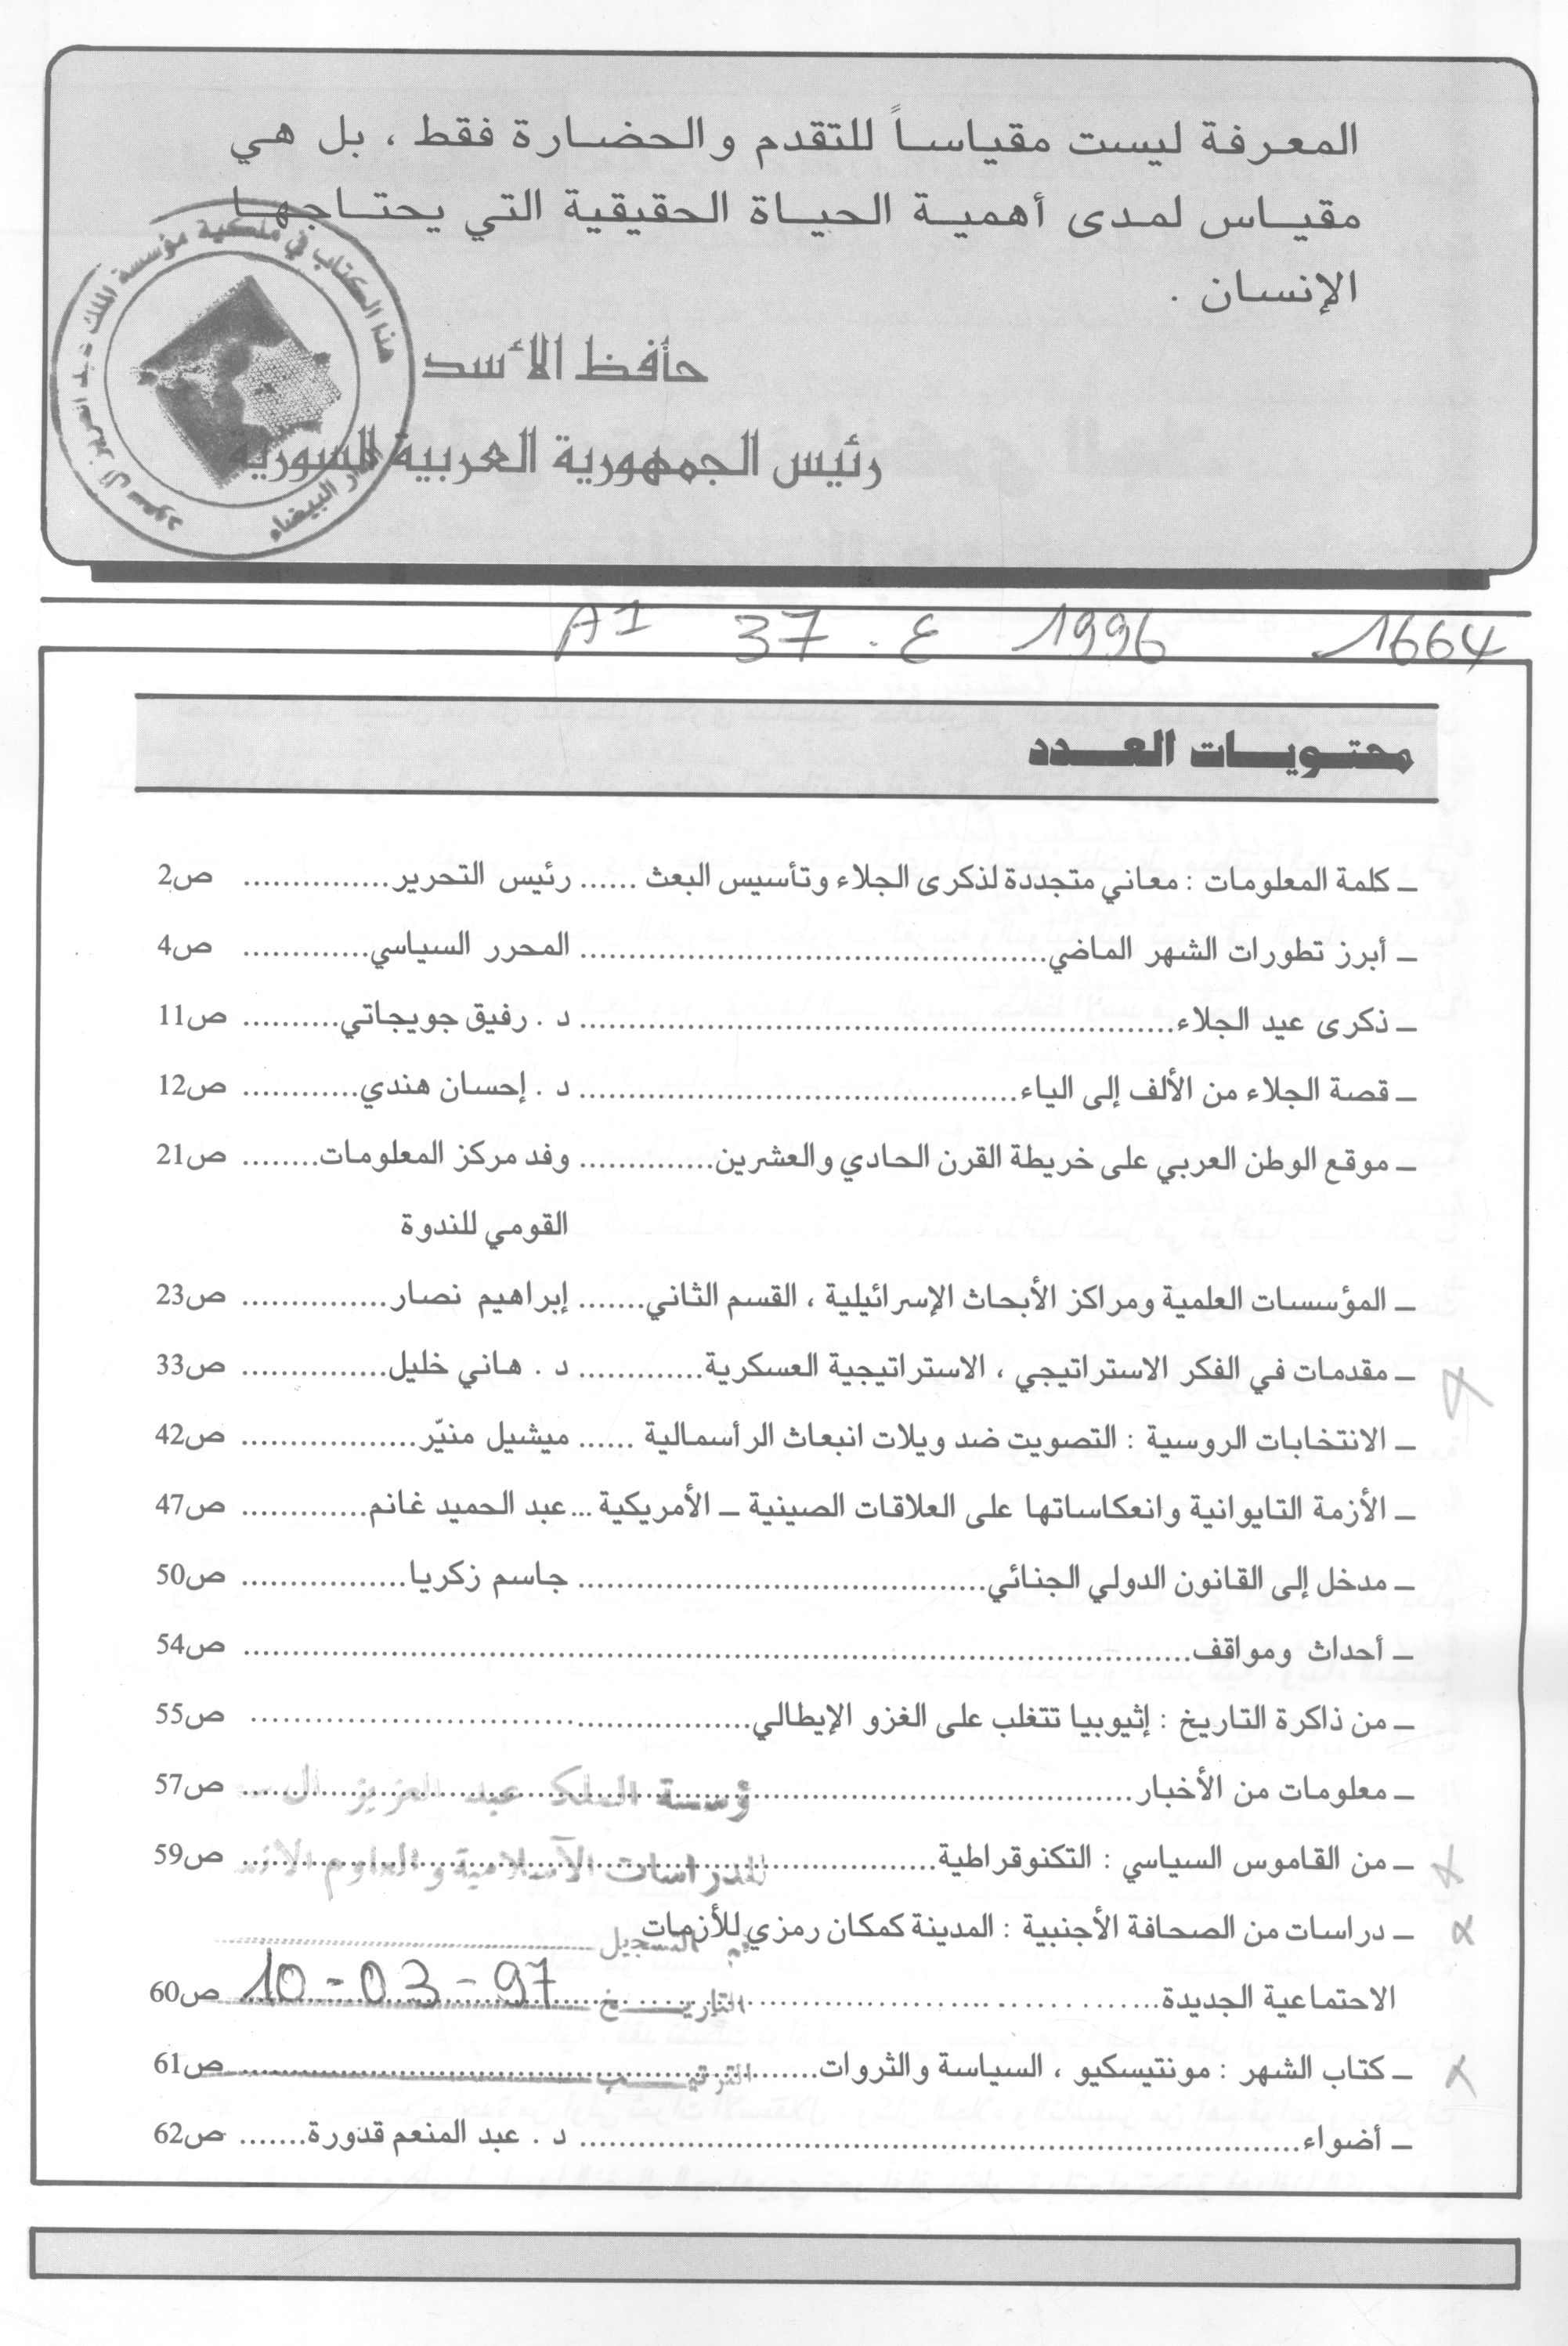 المعرفة ليست مقياساً للتقدم والحضارة فقط ، بل هي
مقياس لمدى أهمية الحياة الحقيقية التي يحتاجها
الإنسان .
حافظ الأسد
رئيس الجمهورية العربية السورية
هذا الكتاب في ملكية مؤسسة الملك عبد العزيز آل سعود
الدار البيضاء
A1 37 . ع 1996 1664
محتويات العدد
ـ كلمة المعلومات : معاني متجددة لذكرى الجلاء وتأسيس البعث ...... رئيس التحرير ............... ص2
ـ أبرز تطورات الشهر الماضي ............................................... المحرر السياسي ............. ص4
ـ ذكرى عيد الجلاء ............................................................ د . رفيق جويجاتي .......... ص11
ـ قصة الجلاء من الألف إلى الياء ............................................ د . إحسان هندي ............ ص12
ـ موقع الوطن العربي على خريطة القرن الحادي والعشرين .............. وفد مركز المعلومات ........ ص21
القومي للندوة
ـ المؤسسات العلمية ومراكز الأبحاث الإسرائيلية ، القسم الثاني ....... إبراهيم نصار ............... ص23
ـ مقدمات في الفكر الاستراتيجي ، الاستراتيجية العسكرية ............. د . هاني خليل ............... ص33
ـ الانتخابات الروسية : التصويت ضد ويلات انبعاث الرأسمالية ...... ميشيل منيّر .................. ص42
ـ الأزمة التايوانية وانعكاساتها على العلاقات الصينية ـ الأمريكية ... عبد الحميد غانم ............. ص47
ـ مدخل إلى القانون الدولي الجنائي ......................................... جاسم زكريا ................. ص50
ـ أحداث ومواقف ................................................................................ ص54
ـ من ذاكرة التاريخ : إثيوبيا تتغلب على الغزو الإيطالي .................................................. ص55
ـ معلومات من الأخبار ................................................................................ ص57
مؤسسة الملك عبد العزيز آل
ـ من القاموس السياسي : التكنوقراطية ...................................................................... ص59
للدراسات الآسلامية والعلوم
ـ دراسات من الصحافة الأجنبية : المدينة كمكان رمزي للأزمات
التسجيل
الاحتماعية الجديدة ................................................................................ ص60
التاريخ 10-03-97
ـ كتاب الشهر : مونتيسكيو ، السياسة والثروات .......................................................... ص61
الترتيب
ـ أضواء ........................................................................ د . عبد المنعم قدورة ....... ص62